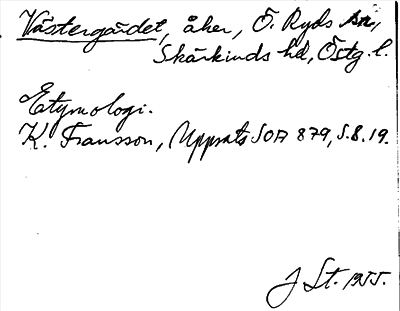 Västergärdet, åker, Ö. Ryds sn,
Skärkinds hd, Östg. l.
Etymologi.
K. Fransson, Uppsats SOA 879, S. 8. 19.
J St. 1955.